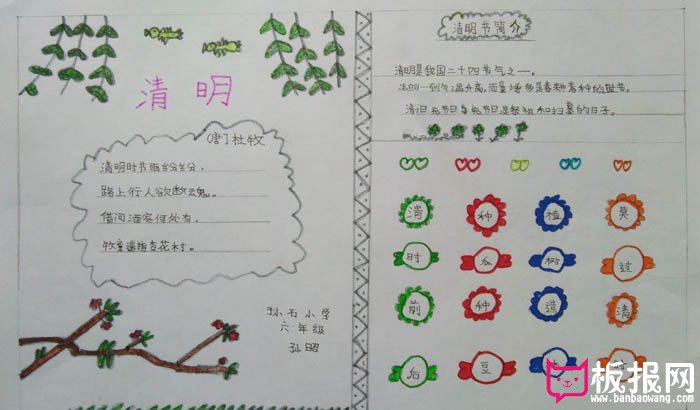 清明
(唐)杜牧
清明时节雨纷纷，
路上行人欲断魂。
借问酒家何处有，
牧童遥指杏花村。
孙石小学
六年级
孙昭
清明节简介
清明是我国二十四节气之一。
清明一到气温升高，雨量增多是春耕春种的时节。
节日是祭祖和扫墓的日子。
清 种 植
时 瓜 树 过
前 种 造 清
后 豆
板报网
www.banbaowang.com